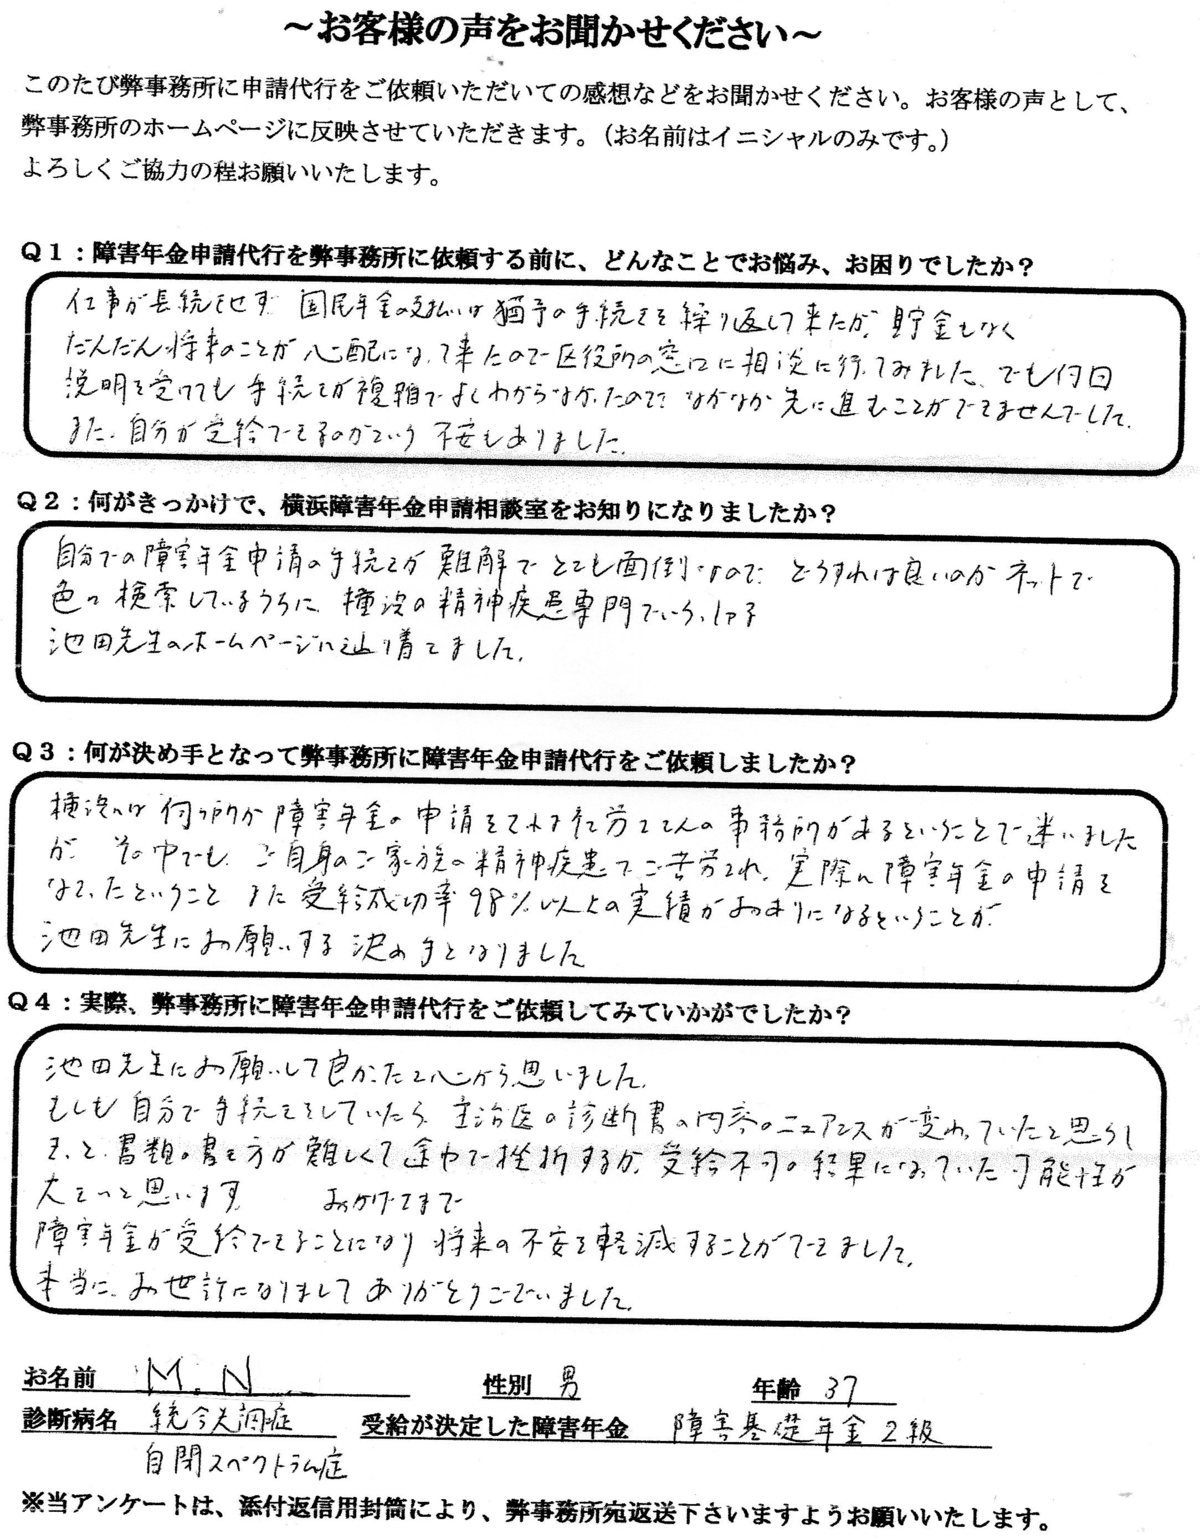 ～お客様の声をお聞かせください～
このたび弊事務所に申請代行をご依頼いただいての感想などをお聞かせください。お客様の声として、
弊事務所のホームページに反映させていただきます。（お名前はイニシャルのみです。）
よろしくご協力の程お願いいたします。
Ｑ１：障害年金申請代行を弊事務所に依頼する前に、どんなことでお悩み、お困りでしたか？
仕事が長続きせず 国民年金の支払いは猶予の手続きを繰り返して来たが、貯金もなく
だんだん将来のことが心配になって来たので区役所の窓口に相談に行ってみました。でも何回
説明を受けても手続きが複雑でよくわからなかったので、なかなか先に進むことができませんでした。
また、自分が受給できるのかという不安もありました。
Ｑ２：何がきっかけで、横浜障害年金申請相談室をお知りになりましたか？
自分での障害年金申請の手続きが難解でとても面倒なので、どうすれば良いのかネットで
色々検索しているうちに、横浜の精神疾患専門でいらっしゃる
池田先生のホームページに辿り着きました。
Ｑ３：何が決め手となって弊事務所に障害年金申請代行をご依頼しましたか？
横浜には何ヶ所か障害年金の申請をされる社労士さんの事務所があるということで迷いました
が、その中でも、ご自身のご家族の精神疾患でご苦労され、実際に障害年金の申請を
なさったということ また受給成功率98％以上の実績がおありになるということが
池田先生にお願いする決め手となりました
Ｑ４：実際、弊事務所に障害年金申請代行をご依頼してみていかがでしたか？
池田先生にお願いして良かったと心から思いました。
もしも自分で手続きをしていたら、主治医の診断書の内容のニュアンスが変わっていたと思うし
きっと書類の書き方が難しくて途中で挫折するか、受給不可の結果になっていた可能性が
大きいと思います。 おかげさまで
障害年金が受給できることになり 将来の不安を軽減することができました。
本当に、お世話になりましてありがとうございました。
お名前 M.N 性別 男 年齢 37
診断病名 統合失調症 受給が決定した障害年金 障害基礎年金２級
自閉スペクトラム症
※当アンケートは、添付返信用封筒により、弊事務所宛返送下さいますようお願いいたします。